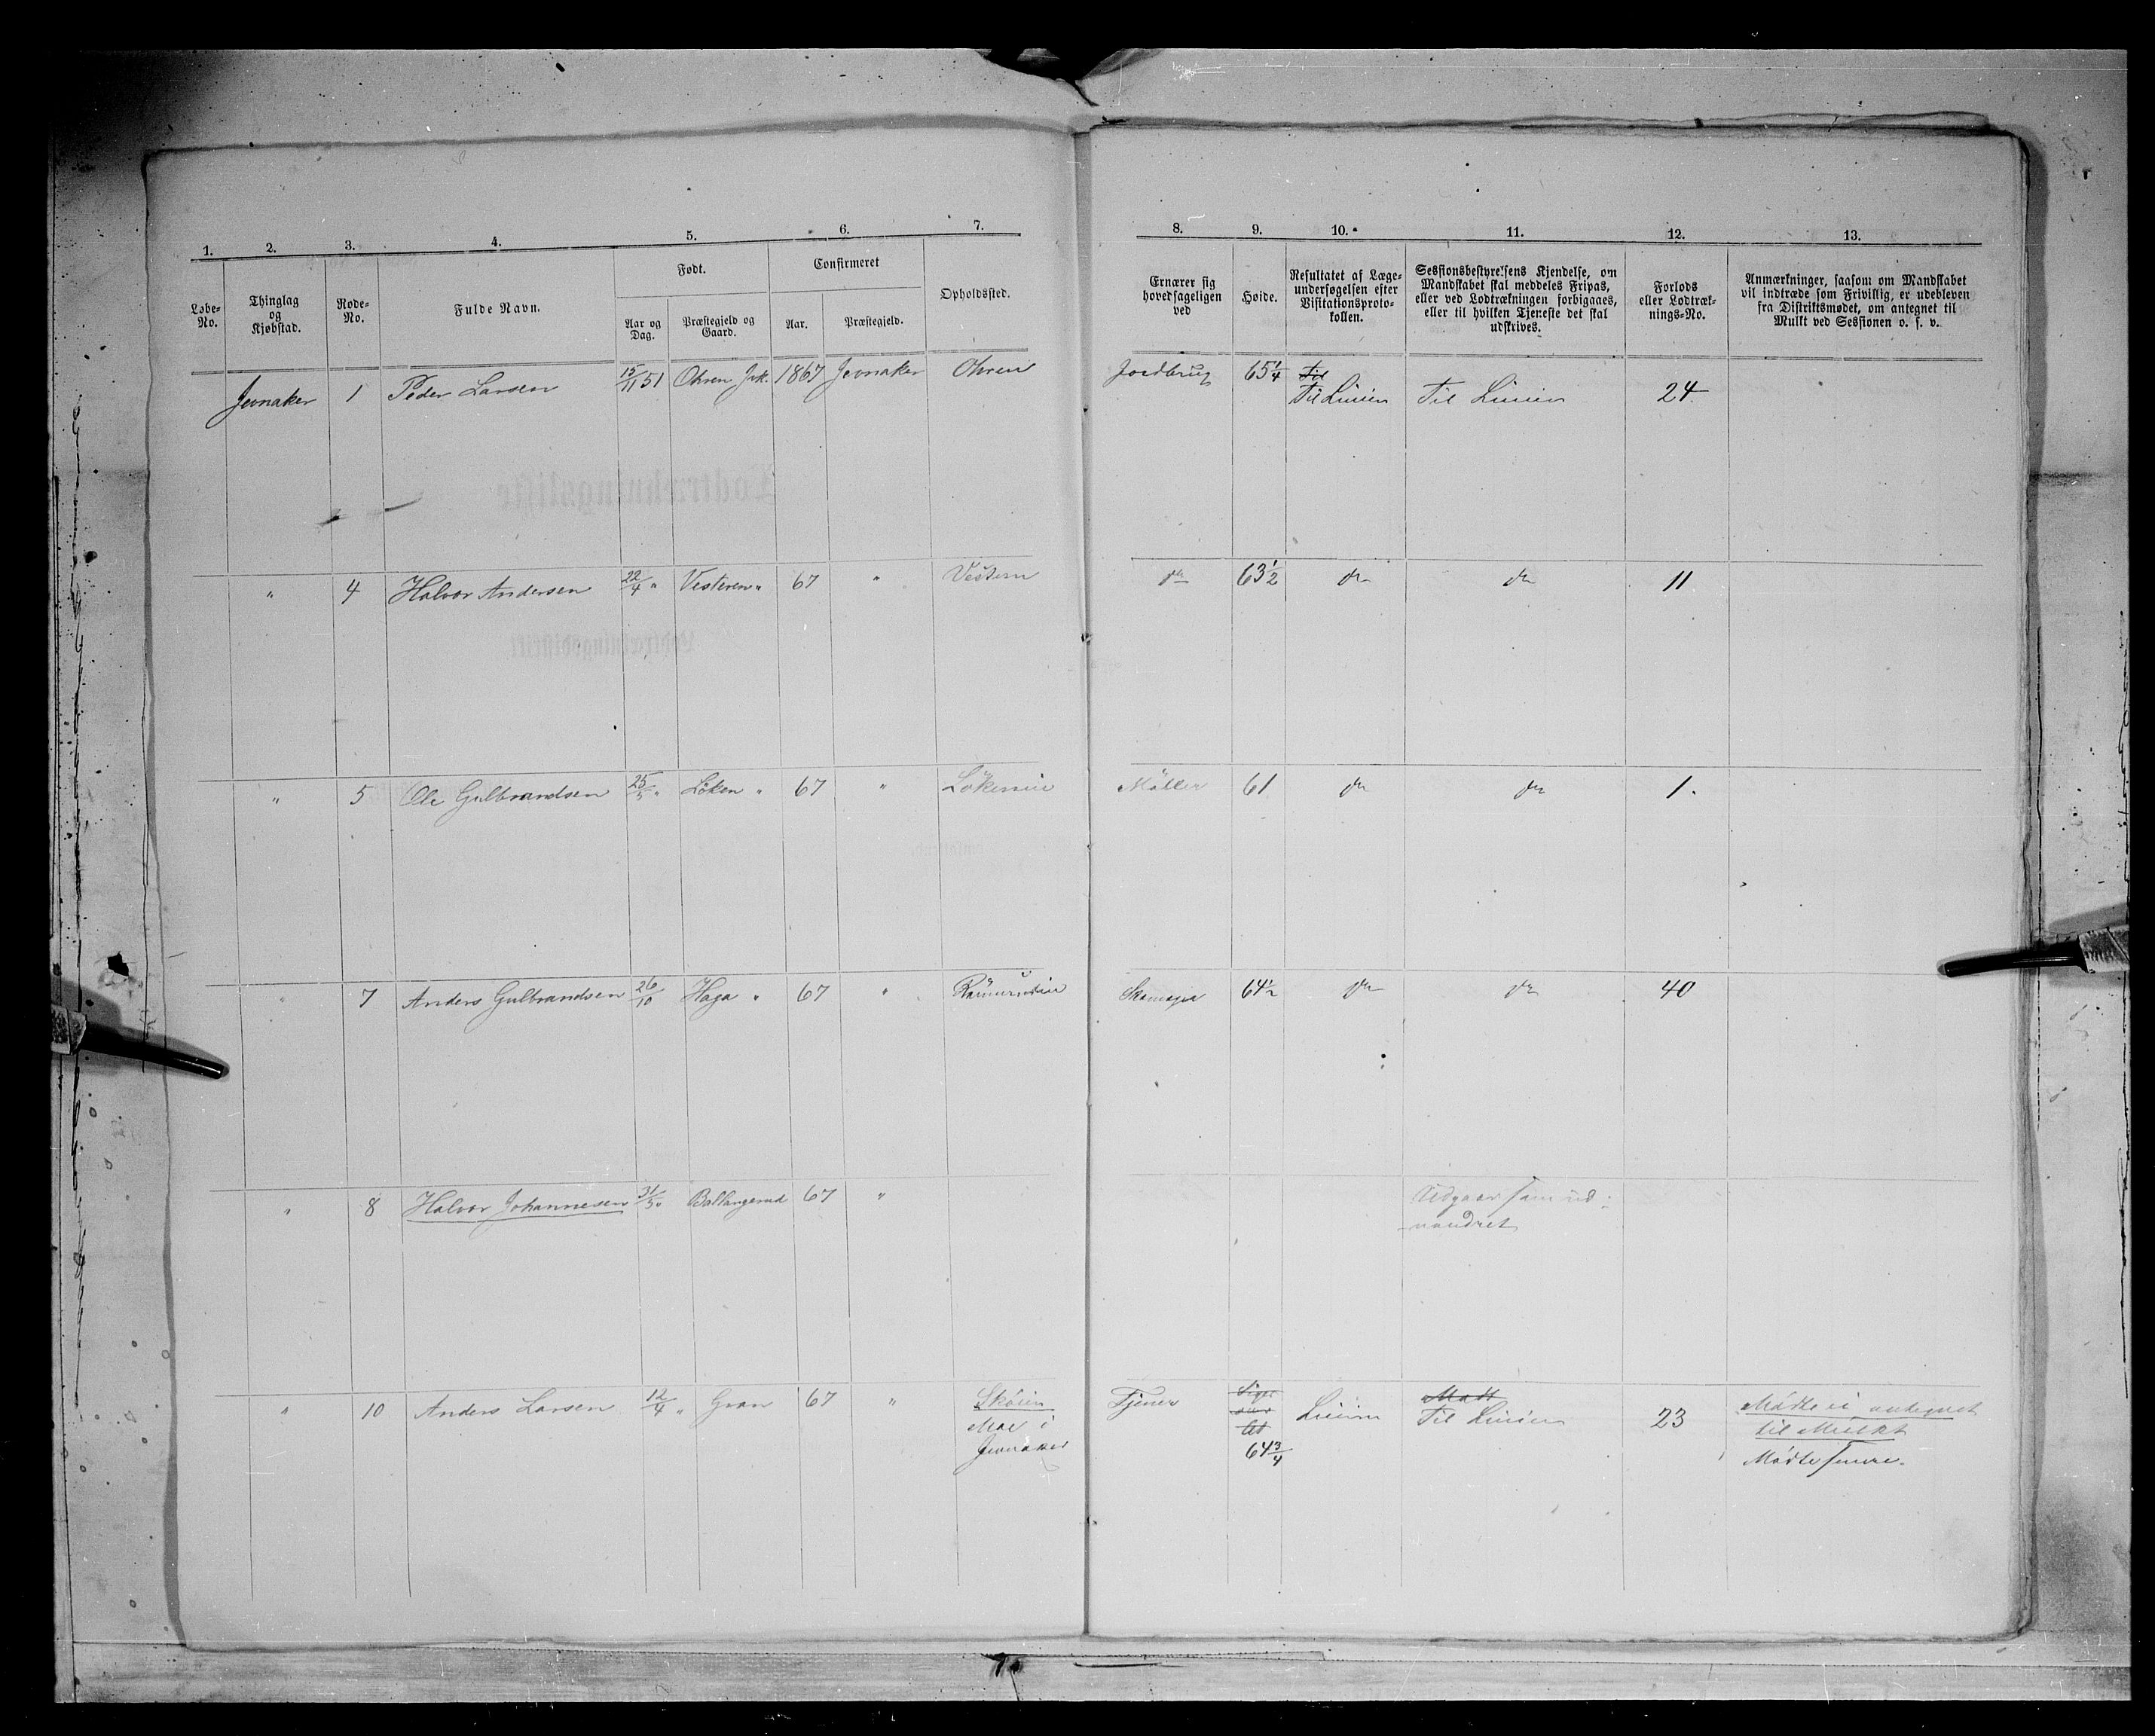 1. 2. 3. 4. 5. 6. 7. 8. 9. 10. 11. 12. 13.
Løbe-No.
Thinglag og Kjøbstad.
Rode-No.
Fulde Navn.
Født.
Aar og Dag.
Præstegjeld og Gaard.
Confirmeret
Aar.
Præstegjeld.
Opholdssted.
Ernærer sig hovedsageligen ved
Høide.
Resultatet af Læge-
undersøgelsen efter
Visitationsproto-
kollen.
Sessionsbestyrelsens Kjendelse, om
Mandskabet skal meddeles Fripas,
eller ved Lodtrækningen forbigaaes,
eller til hvilken Tjeneste det skal
udskrives.
Forlods
eller Lodtræk-
nings-No.
Anmærkninger, saasom om Mandskabet
vil indtræde som Frivillig, er udebleven
fra Distriktsmødet, om antegnet til
Mulkt ved Sessionen o. s. v.
Jevnaker 1 Peder Larsen 15/11 51 Ohren Jvk. 1867 Jevnaker Ohren Jordbrug 65 1/4 Til
Til Linien Til Linien 24
" 4 Halvor Andersen 22/4 " Vesteren " 67 " Vestern do 63 1/2 do do 11
" 5 Ole Gulbrandsen 25/5 " Løken " 67 " Løkeneie Møller 61 do do 1.
" 7 Anders Gulbrandsen 26/10 Haga " 67 " Skomager 64 1/2 do do 40
" 8 Halvor Johannesen 31/5 " Ballangerud 67 " Udgaar som ud-
vandret
" 10 Anders Larsen 12/4 " Gran 67 " Skøien
Moe i
Jevnaker
Tjener
64 3/4
Linien
Til Linien
23
Mødte ei antegnet
til Mulkt
Mødte senere.